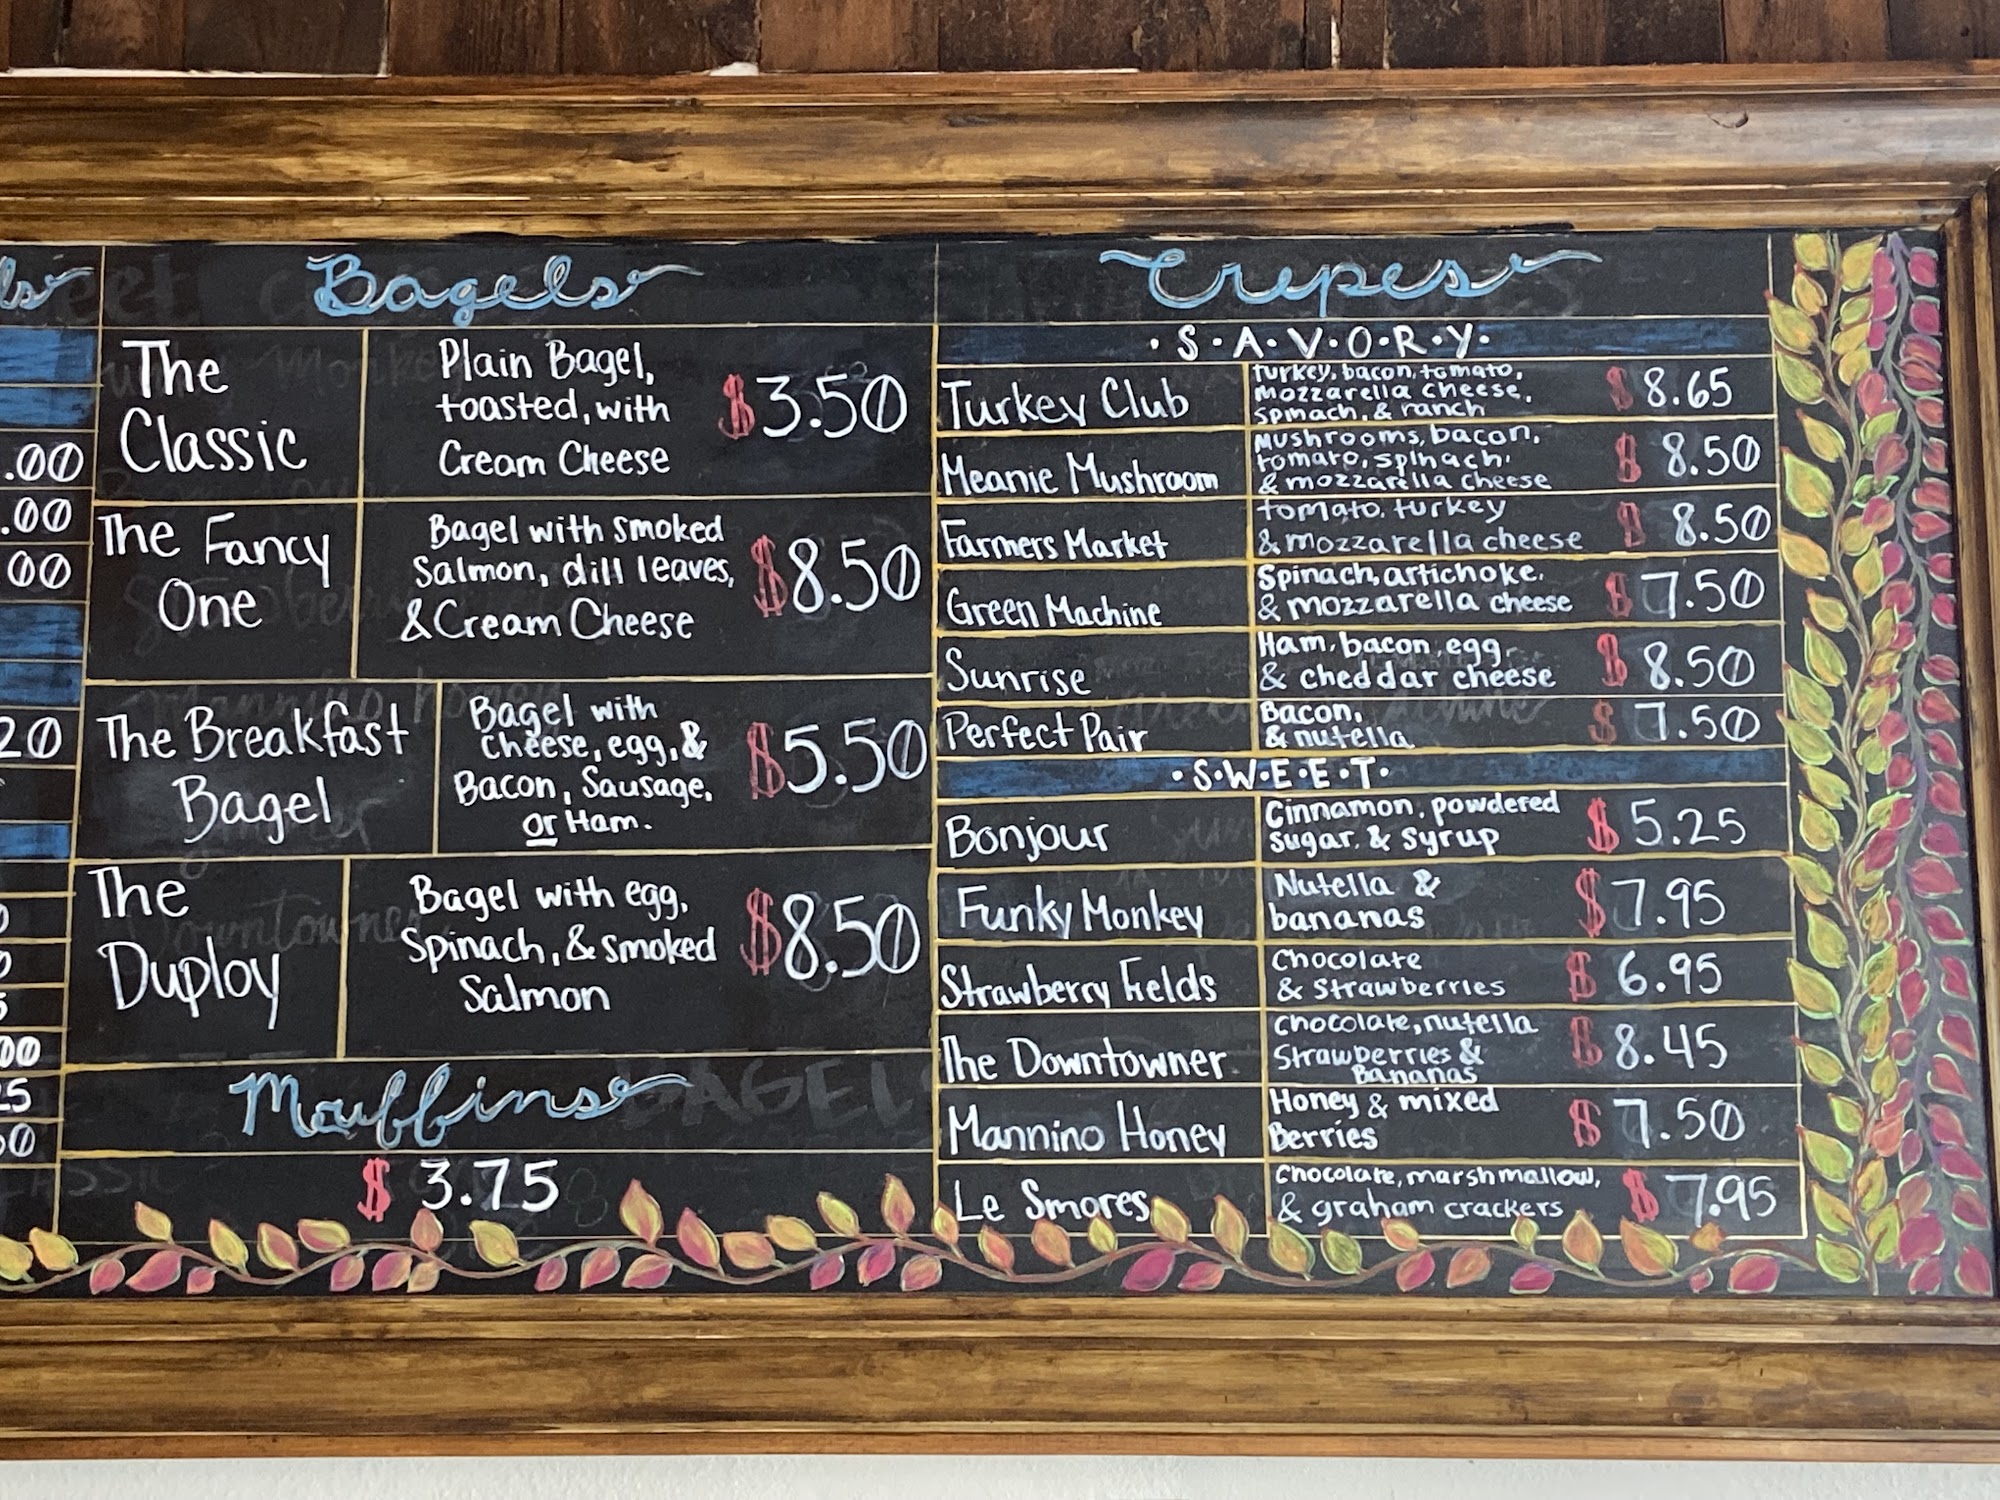 ls
.00
.00
00
20
00
25
50
Bagels
The
Classic
Plain Bagel,
toasted, with
Cream Cheese
$3.50
The Fancy
One
Bagel with smoked
Salmon, dill leaves,
& Cream Cheese
$8.50
The Breakfast
Bagel
Bagel with
Cheese, egg, &
Bacon, Sausage,
or Ham.
$5.50
The
Duploy
Bagel with egg,
Spinach, & smoked
Salmon
$8.50
Muffins
$ 3.75
Crepes
·S·A·V·O·R·Y·
Turkey Club
turkey, bacon, tomato,
mozzarella cheese,
spinach, & ranch
$ 8.65
Meanie Mushroom
Mushrooms, bacon,
tomato, spinach,
& mozzarella cheese
$ 8.50
Farmers Market
tomato, turkey
& mozzarella cheese
$ 8.50
Green Machine
Spinach, artichoke,
& mozzarella cheese
$ 7.50
Sunrise
Ham, bacon, egg,
& cheddar cheese
$ 8.50
Perfect Pair
Bacon,
& nutella
$ 7.50
·S·W·E·E·T·
Bonjour
Cinnamon, powdered
sugar, & syrup
$ 5.25
Funky Monkey
Nutella &
bananas
$ 7.95
Strawberry Fields
Chocolate
& Strawberries
$ 6.95
The Downtowner
Chocolate, nutella
Strawberries &
Bananas
$ 8.45
Mannino Honey
Honey & mixed
Berries
$ 7.50
Le Smores
Chocolate, marshmallow,
& graham crackers
$ 7.95